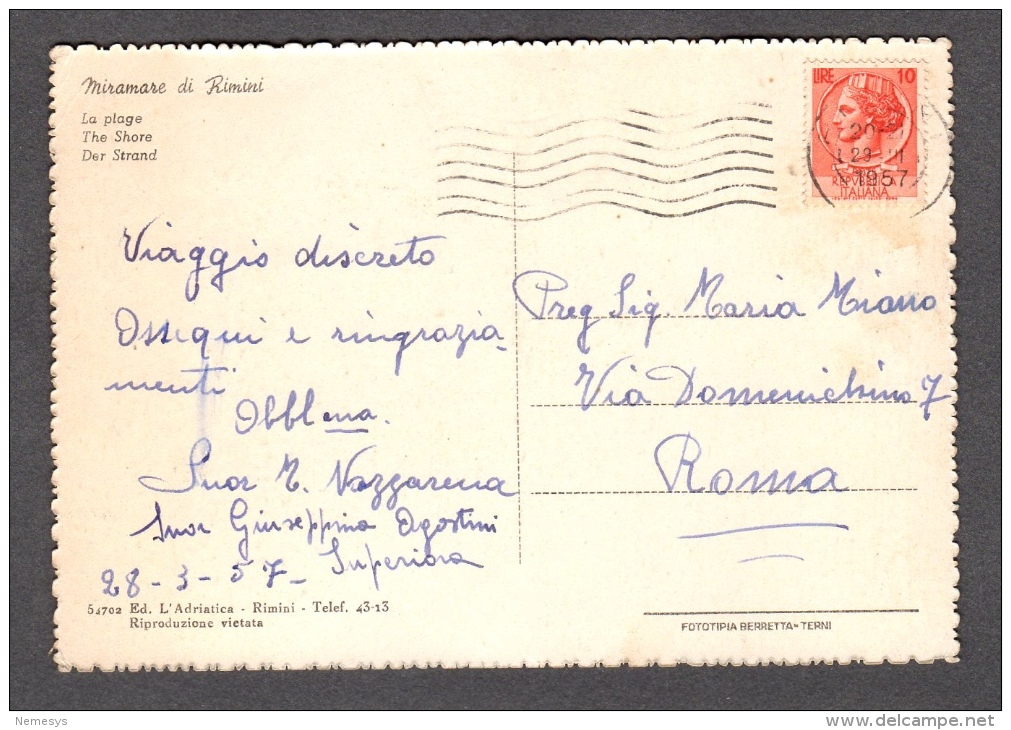 Miramare di Rimini
La plage
The Shore
Der Strand
LIRE 10
29 III
1957
REPVBBLICA
ITALIANA
Viaggio discreto
Ossequi e ringrazia-
menti
Obbl.ma.
Suor M. Nazzarena
Suor Giuseppina Agostini
Superiora
28-3-57-
Preg Sig. Maria Miano
Via Domenichino 7
Roma
54702 Ed. L'Adriatica - Rimini - Telef. 43-13
Riproduzione vietata
FOTOTIPIA BERRETTA - TERNI
Nemesys
www.delcampe.net